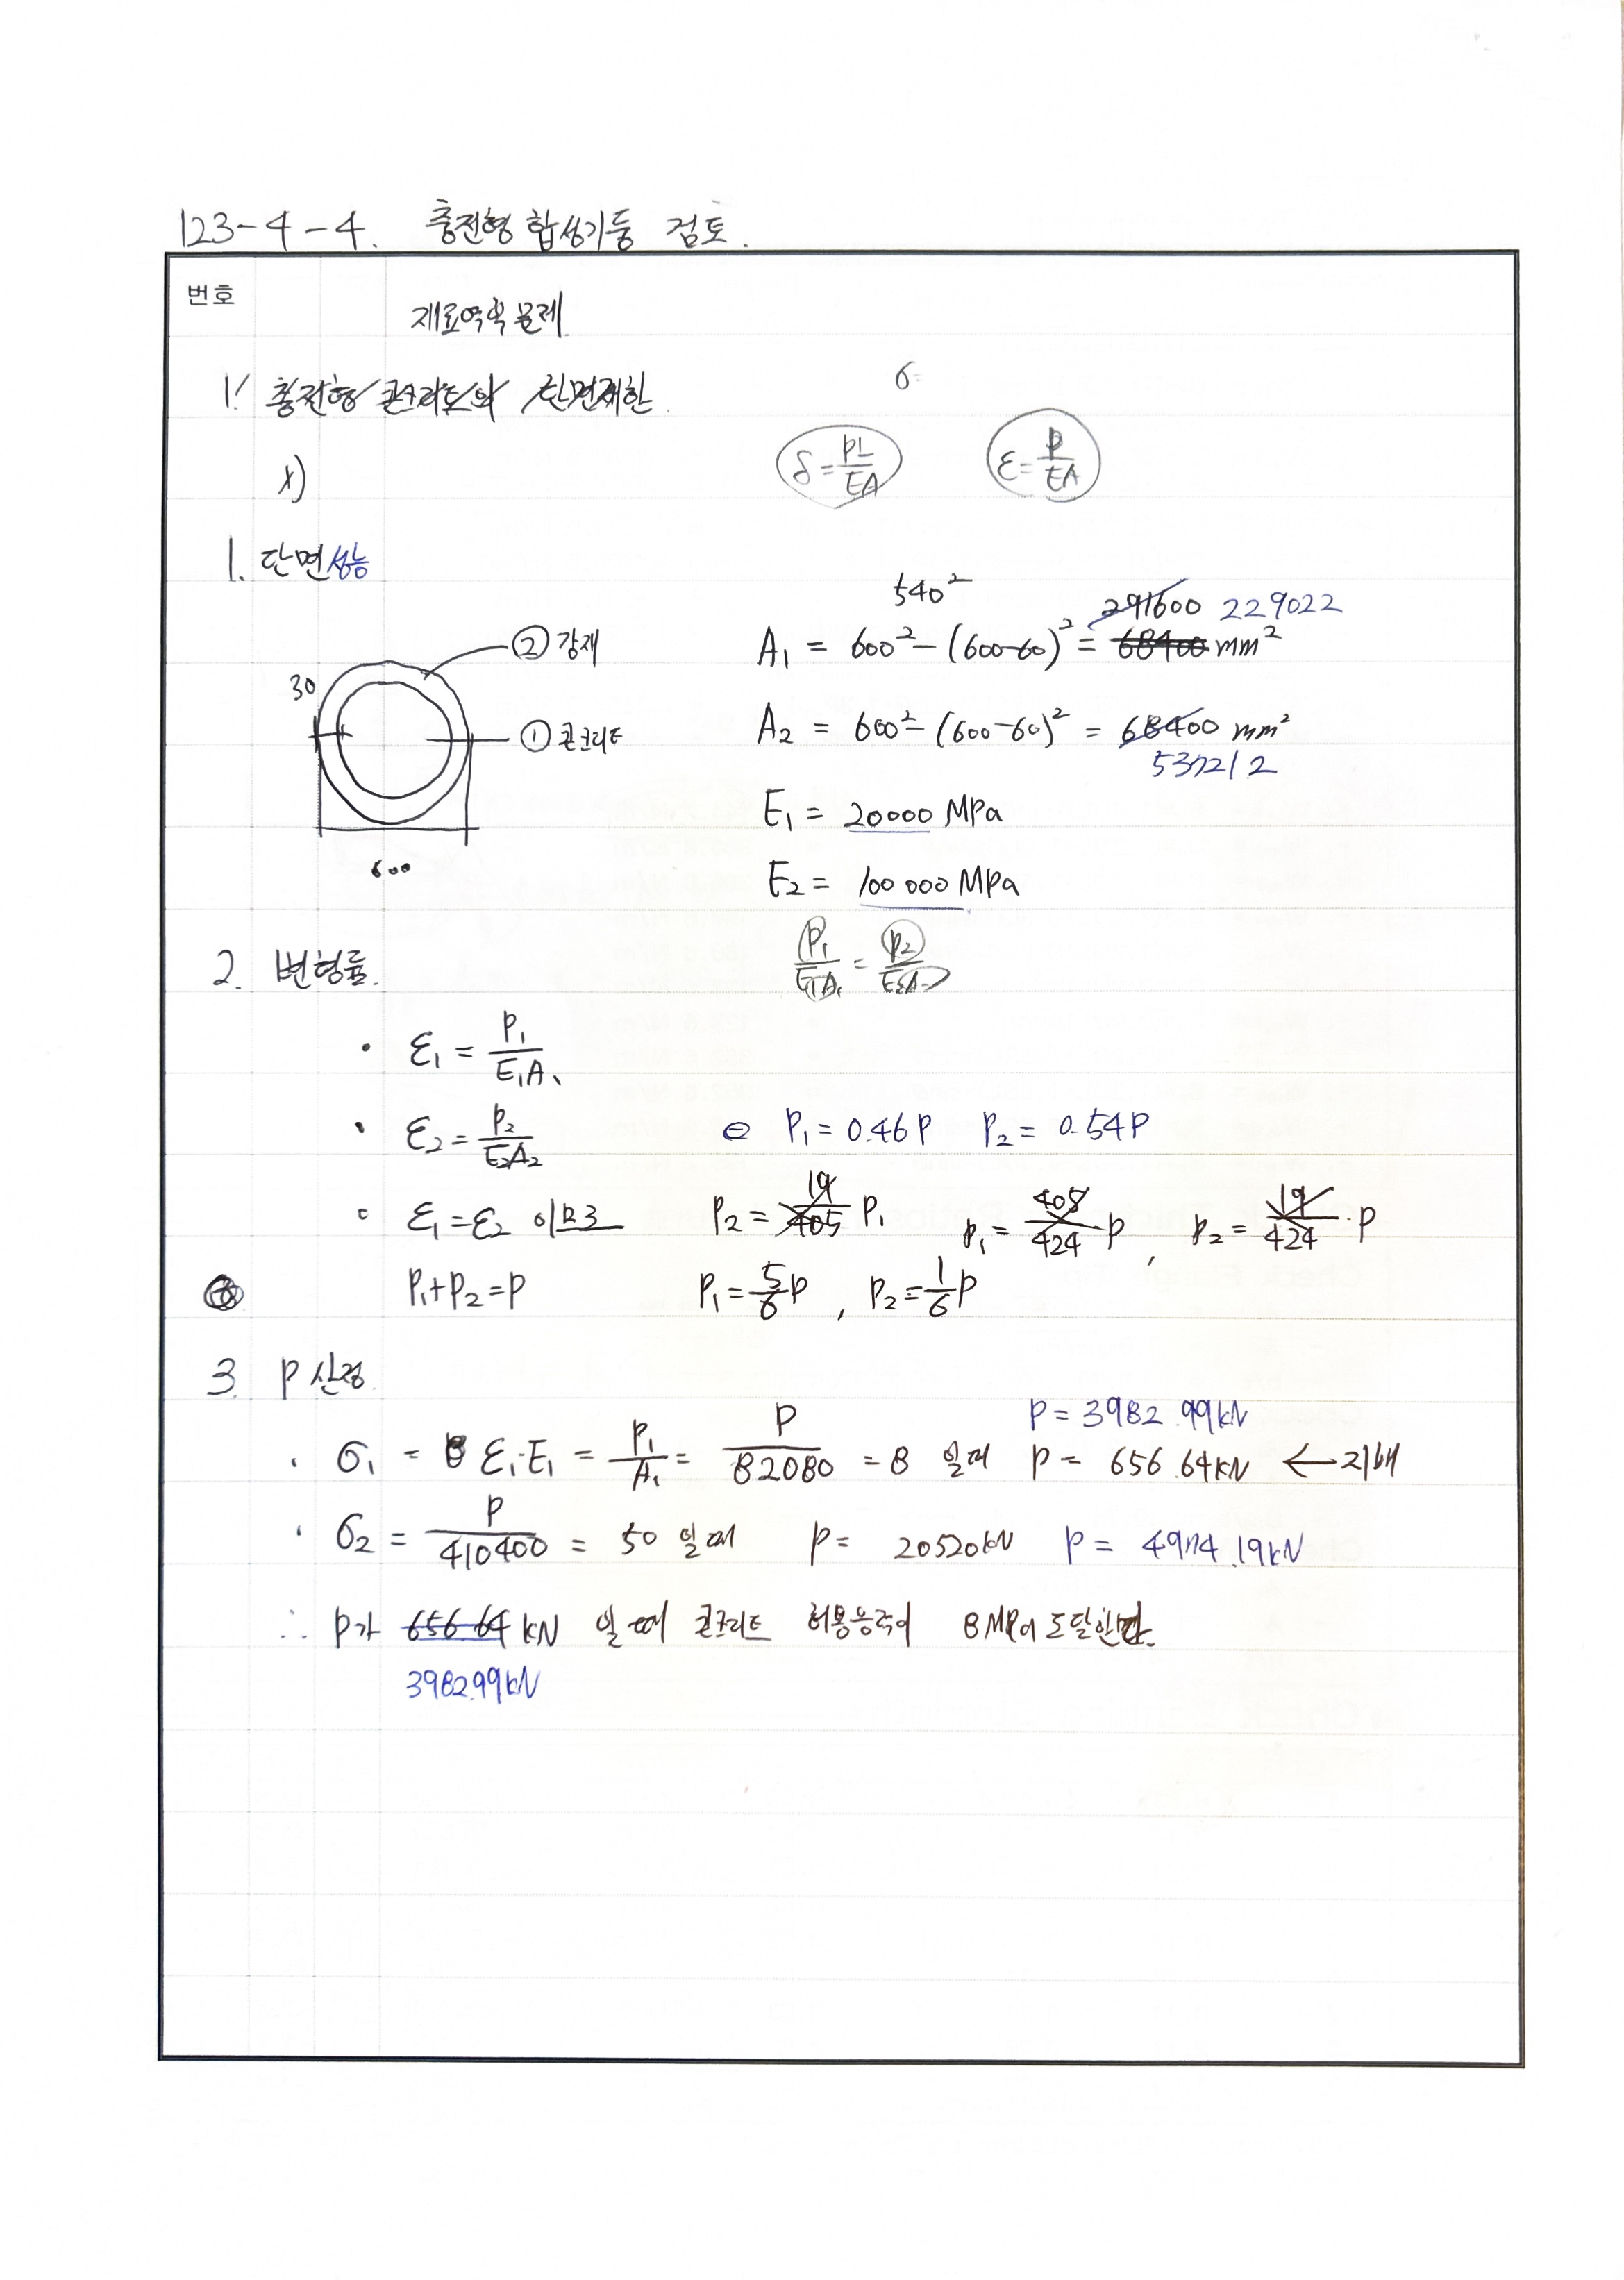 123-4-4. 충전형 합성기둥 검토.
번호
재료역학 문제
1. 충전형 콘크리트의 단면제한
σ=
x)
δ = PL/EA   ε = P/EA
1. 단면성능
540²
291600 229022
A₁ = 600² - (600-60)² = 68400 mm²
② 강재
30
A₂ = 600² - (600-60)² = 68400 mm²
① 콘크리트
537212
E₁ = 20000 MPa
600
E₂ = 100000 MPa
P₁/E₁A₁ = P₂/E₂A₂
2. 변형률.
• ε₁ = P₁/E₁A₁
• ε₂ = P₂/E₂A₂   ⊖ P₁ = 0.46P   P₂ = 0.54P
∘ ε₁ = ε₂ 이므로   P₂ = 19/405 P₁   P₁ = 405/424 P , P₂ = 19/424 · P
P₁+P₂ = P   P₁ = 5/6 P , P₂ = 1/6 P
3. P 산정
P = 3982.99kN
• σ₁ = ε₁·E₁ = P₁/A₁ = P/82080 = 8 일때 P = 656.64kN ← 지배
• σ₂ = P/410400 = 50 일때 P = 20520kN   P = 4974.19kN
∴ P가 656.64 kN 일 때 콘크리트 허용응력이 8MPa 도달한다.
3982.99kN